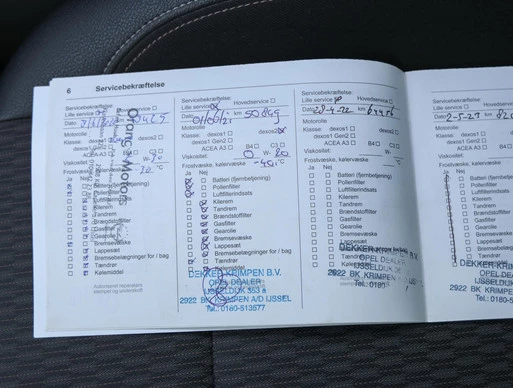 6 Servicebekræftelse
Servicebekræftelse:
Lille service Hovedservice
Dato: km
Motorolie
Klasse: dexos1 dexos2
dexos1 Gen2
ACEA A3 C3
Viskositet: W-
Frostvæske, kølervæske °C
Ja Nej
Batteri (fjernbetjening)
Pollenfilter
Luftfilterindsats
Kilerem
Tandrem
Brændstoffilter
Gasfilter
Gearolie
Bremsevæske
Lappesæt
Bremsebelægninger for / bag
Tændrør
Kølemiddel
Autoriseret reparatørs
stempel og underskrift
Orange Motors
Servicebekræftelse:
Lille service Hovedservice
Dato: 01/06/21 km 50849
Motorolie
Klasse: dexos1 dexos2
dexos1 Gen2
ACEA A3 B4 C3
Viskositet: 0 W- 20
Frostvæske, kølervæske -40 °C
Ja Nej
Batteri (fjernbetjening)
Pollenfilter
Luftfilterindsats
Kilerem
Tandrem
Brændstoffilter
Gasfilter
Gearolie
Bremsevæske
Lappesæt
Bremsebelægninger for / bag
Tændrør
DEKKER KRIMPEN B.V.
OPEL DEALER
IJSSELDIJK 353 a
2922 BK KRIMPEN A/D IJSSEL
Tel.: 0180-513577
Servicebekræftelse:
Lille service Hovedservice
Dato: 28-4-22 km
Motorolie
Klasse: dexos1 dexos2
dexos1 Gen2
ACEA A3 B4 C3
Viskositet: W-
Frostvæske, kølervæske °C
Ja Nej
Batteri (fjernbetjening)
Pollenfilter
Luftfilterindsats
Kilerem
Tandrem
Brændstoffilter
Gasfilter
Gearolie
Bremsevæske
Lappesæt
Bremsebelægninger for / bag
Tændrør
Kølemiddel
DEKKER KRIMPEN
OPEL DEALER
IJSSELDIJK
2922 BK KRIMPEN
Tel.: 0180
Servicebekræftelse:
Lille service
Dato:
Motorolie
Klasse: dexos1
dexos1 Gen2
ACEA A3
Viskositet:
Frostvæske, kølervæske
Ja Nej
Batteri (fjernbetjening)
Pollenfilter
Luftfilterindsats
Kilerem
Tandrem
Brændstoffilter
Gasfilter
Gearolie
Bremsevæske
Lappesæt
Tændrør
DEKKER KRIMPEN
OPEL DEALER
IJSSELDIJK
2922 BK KRIMPEN
Tel.: 0180-513